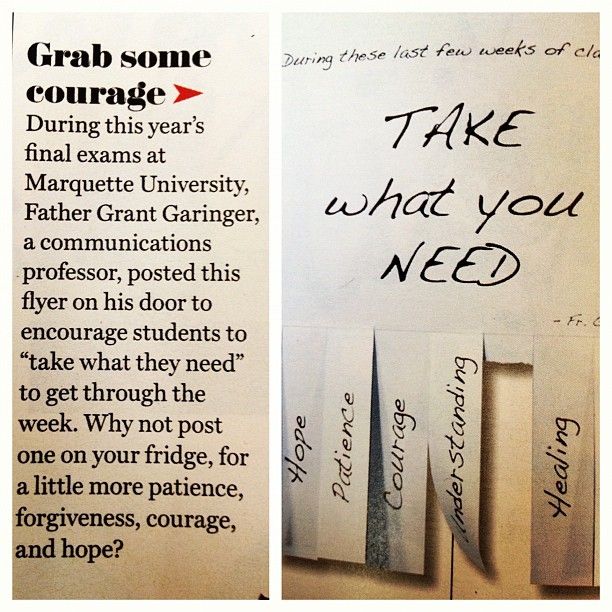 Grab some
courage
During this year's
final exams at
Marquette University,
Father Grant Garinger,
a communications
professor, posted this
flyer on his door to
encourage students to
“take what they need”
to get through the
week. Why not post
one on your fridge, for
a little more patience,
forgiveness, courage,
and hope?
During these last few weeks of cla
TAKE
what you
NEED
- Fr. G
Hope
Patience
Courage
Understanding
Healing